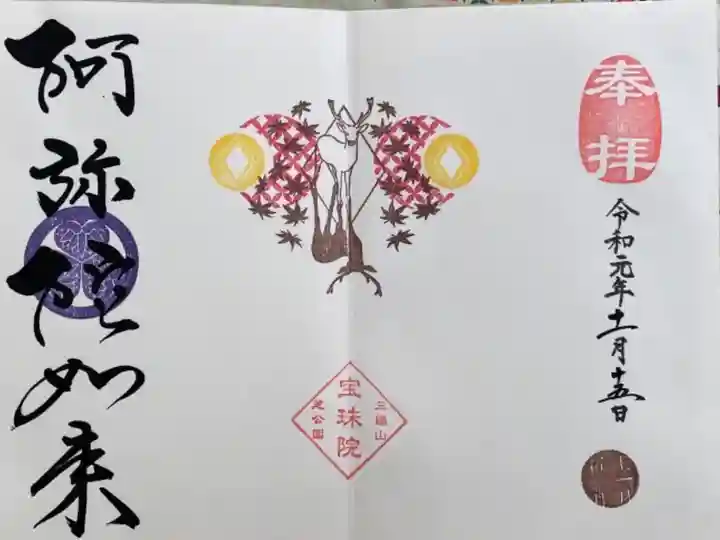 奉拝
令和元年十一月十五日
三縁山
宝珠院
芝公園
阿弥陀如来